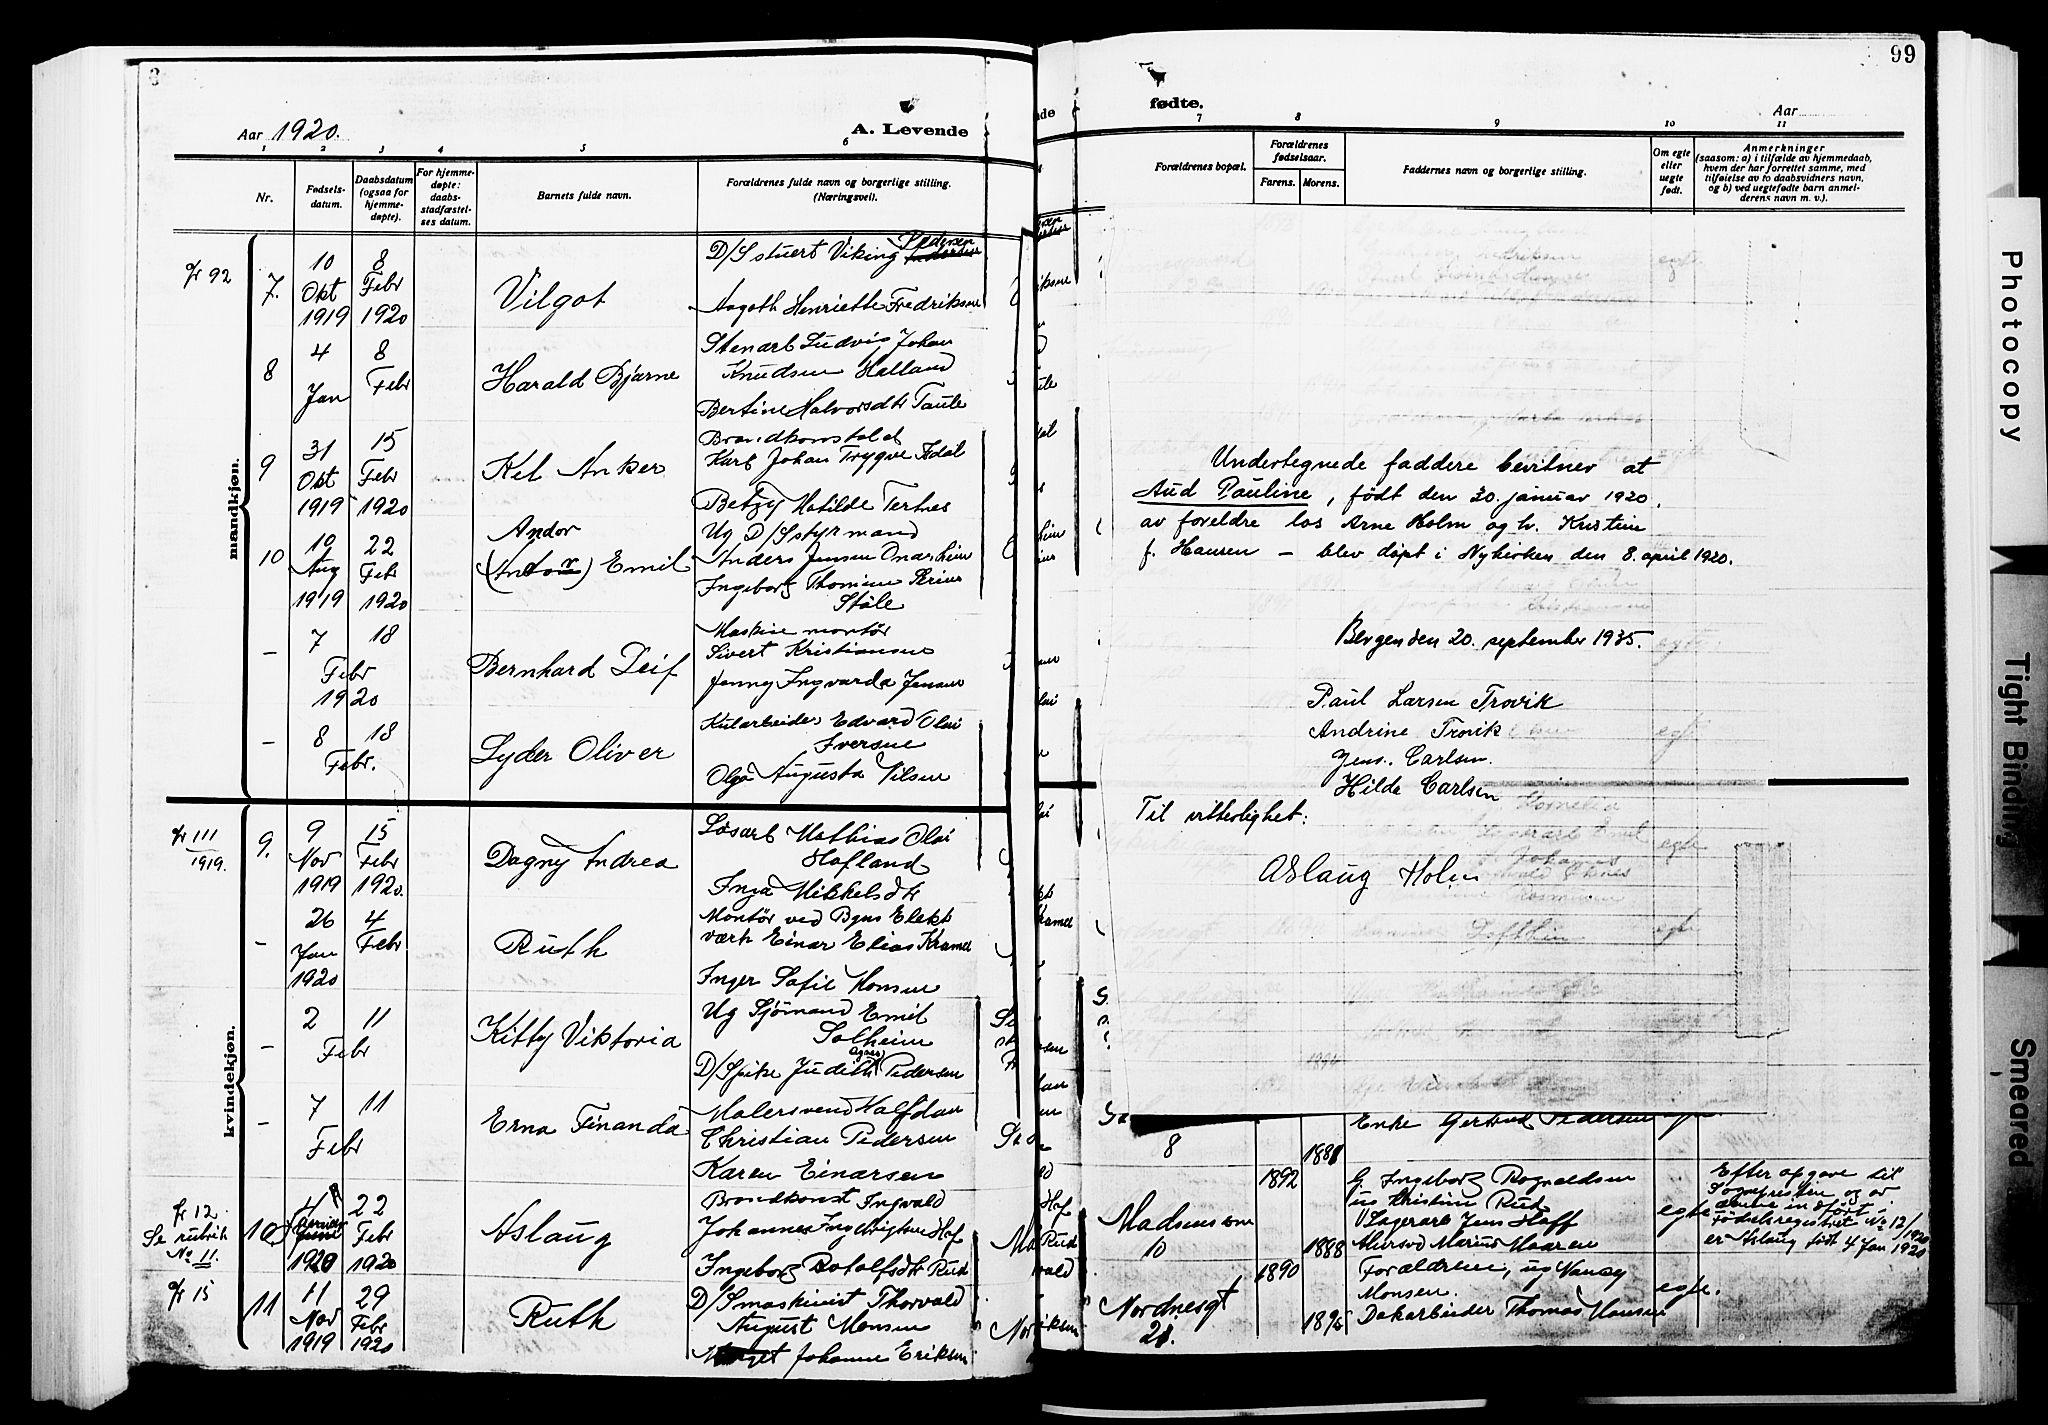 Aar 1920.
A. Levende
1 2 3 4 5 6
Nr.
Fødsels-
datum.
Daabsdatum
(ogsaa for
hjemme-
døpte).
For hjemme-
døpte:
daabs-
stadfæstel-
ses datum.
Barnets fulde navn.
Forældrenes fulde navn og borgerlige stilling.
(Næringsvei).
mandkjøn.
fr 92
7. 10 Okt 1919 8 Febr 1920
Vilgot
D/S stuert Viking Pedersen
Aagoth Henriette Fredriksen
8 4 Jan 8 Febr
Harald Bjarne
Stenarb Ludvig Johan
Knudsen Halland
Bertine Halvorsdtr Taule
9 31 Okt 1919 15 Febr 1920
Kel Anker
Brandkonstabel
Karl Johan Trygve
Betzy Matilde Tertnes
10 10 Aug 1919 22 Feb 1920
Andor
(Antonr) Emil
Ug D/S styrmand
Anders Jensen
Ingeborg Thomine
Støle
- 7 Febr 1920 18
Bernhard Leif
Maskinmontør
Sivert Kristiansen
Jenny Ingvarda Jensen
- 8 Febr. 18
Lyder Oliver
Kularbeider Edvard Olai
Iversen
Olga Augusta Nilsen
kvindekjøn.
fr 111
1919.
9. 9 Nov 1919 15 Febr 1920.
Dagny Andrea
Løsarb Mathias Olai
Hofland
Inga Mikkelsdtr
- 26 Jan 1920 4 Febr
Ruth
Montør ved Bgns Elekt
værk Einar Elias Kramer
Inger Sofie Monsen
- 2 Febr 11
Kitty Viktoria
Ug Sjømand Emil
Solheim
D/Spike Judith Agnes Pedersen
- 7 Febr 11
Erna Finanda
Malersvend Halfdan
Christian Pedersen
Karen Einarsen
fr 12.
Se rubrik
No 11.
10 4 1920 22 Febr 1920
Aslaug
Brandkonst Ingvald
Johannes Ingebrigtsen Hof
Ingeborg Rotolfsdtr Rud
fr 15
11 11 Nov 1919 29 Febr 1920
Ruth
D/S maskinist Thorvald
August Monsen
Johanne Eriksen
99
fødte.
Aar
7 8 9 10 11
Forældrenes bopæl.
Forældrenes
fødselsaar.
Farens. Morens.
Faddernes navn og borgerlige stilling.
Om egte
eller
uegte
født.
Anmerkninger
(saasom: a) i tilfælde av hjemmedaab,
hvem der har forrettet samme, med
tilføielse av to daabsvidners navn,
og b) ved uegtefødte barn anmel-
derens navn m. v.).
Undertegnede faddere bevitner at
Aud Pauline, født den 30. januar 1920.
av foreldre los Arne Holm og h. Kristine
f. Hansen — blev døpt i Nykirken den 8. april 1920.
Bergen den 20. september 1935.
Paul Larsen Trovik
Andrine Trovik
Jens. Carlsen.
Hilda Carlsen
Til vitterlighet:
Aslaug Holm
Enke Gertrud Pedersen
8 1881
Madsensm
10
1892 1888
G. Ingeborg Rognaldsen
ug Kristine Rud
Lagerarb Jens Hoff
Marius Maaren
egte
Efter opgave til
Sognepresten og av
denne indført i
Fødselsregistret No 12/1920
er Aslaug født 4 Jan 1920
Nordnesgt
21.
1890
Forældrene, ug Nancy
Monsen.
Dokarbeider Thomas Hansen
egte.
Photocopy
Tight Binding
Smeared